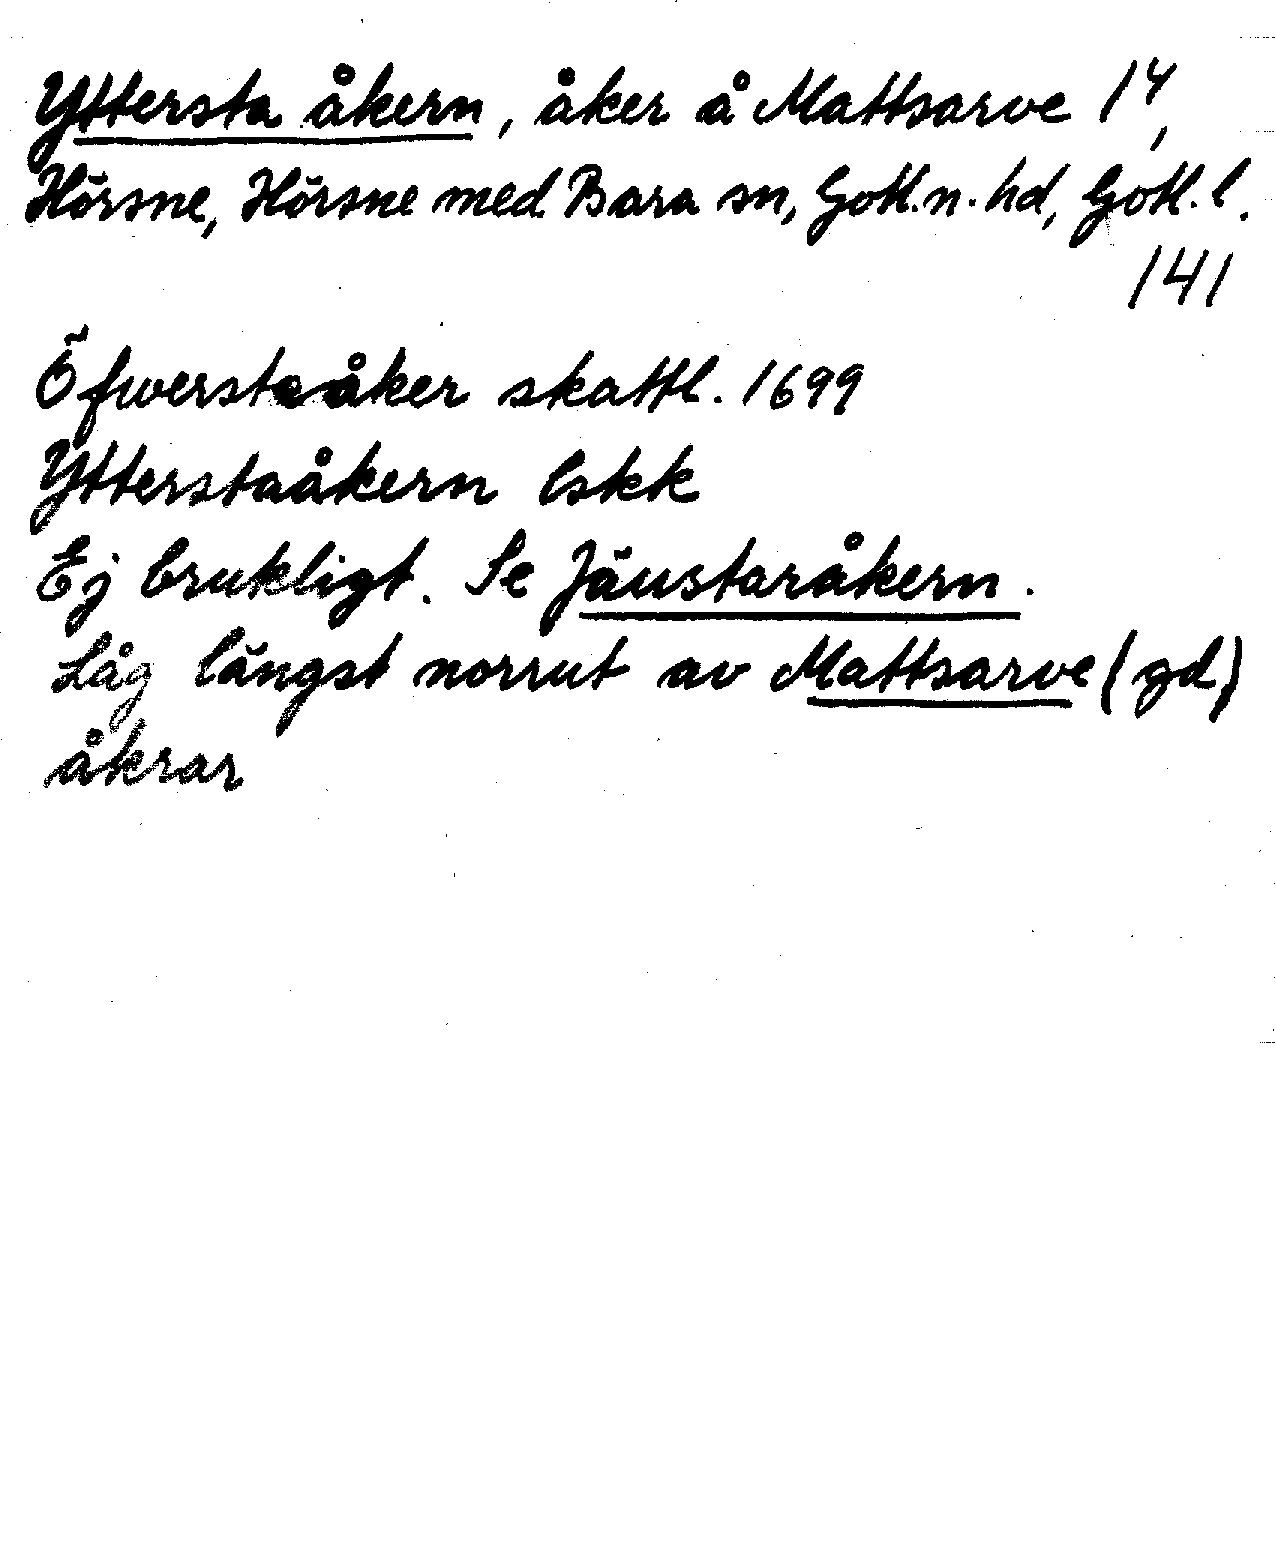 Yttersta åkern, åker å Mattsarve 1⁴,
Hörsne, Hörsne med Bara sn, Gotl. n. hd, Gotl. l.
141
Öfwersteåker skattl. 1699
Ytterstaåkern lskk
Ej brukligt. Se Jäustaråkern.
Låg längst norrut av Mattsarve (gd)
åkrar